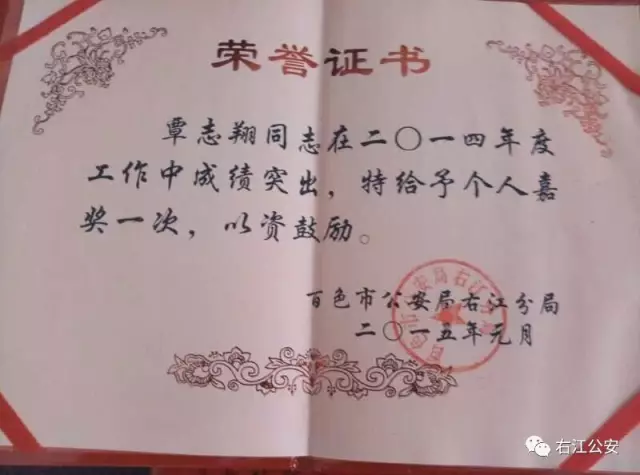 荣誉证书
覃志翔同志在二〇一四年度
工作中成绩突出，特给予个人嘉
奖一次，以资鼓励。
百色市公安局右江分局
二〇一五年元月
百色市公安局右江分局
右江公安